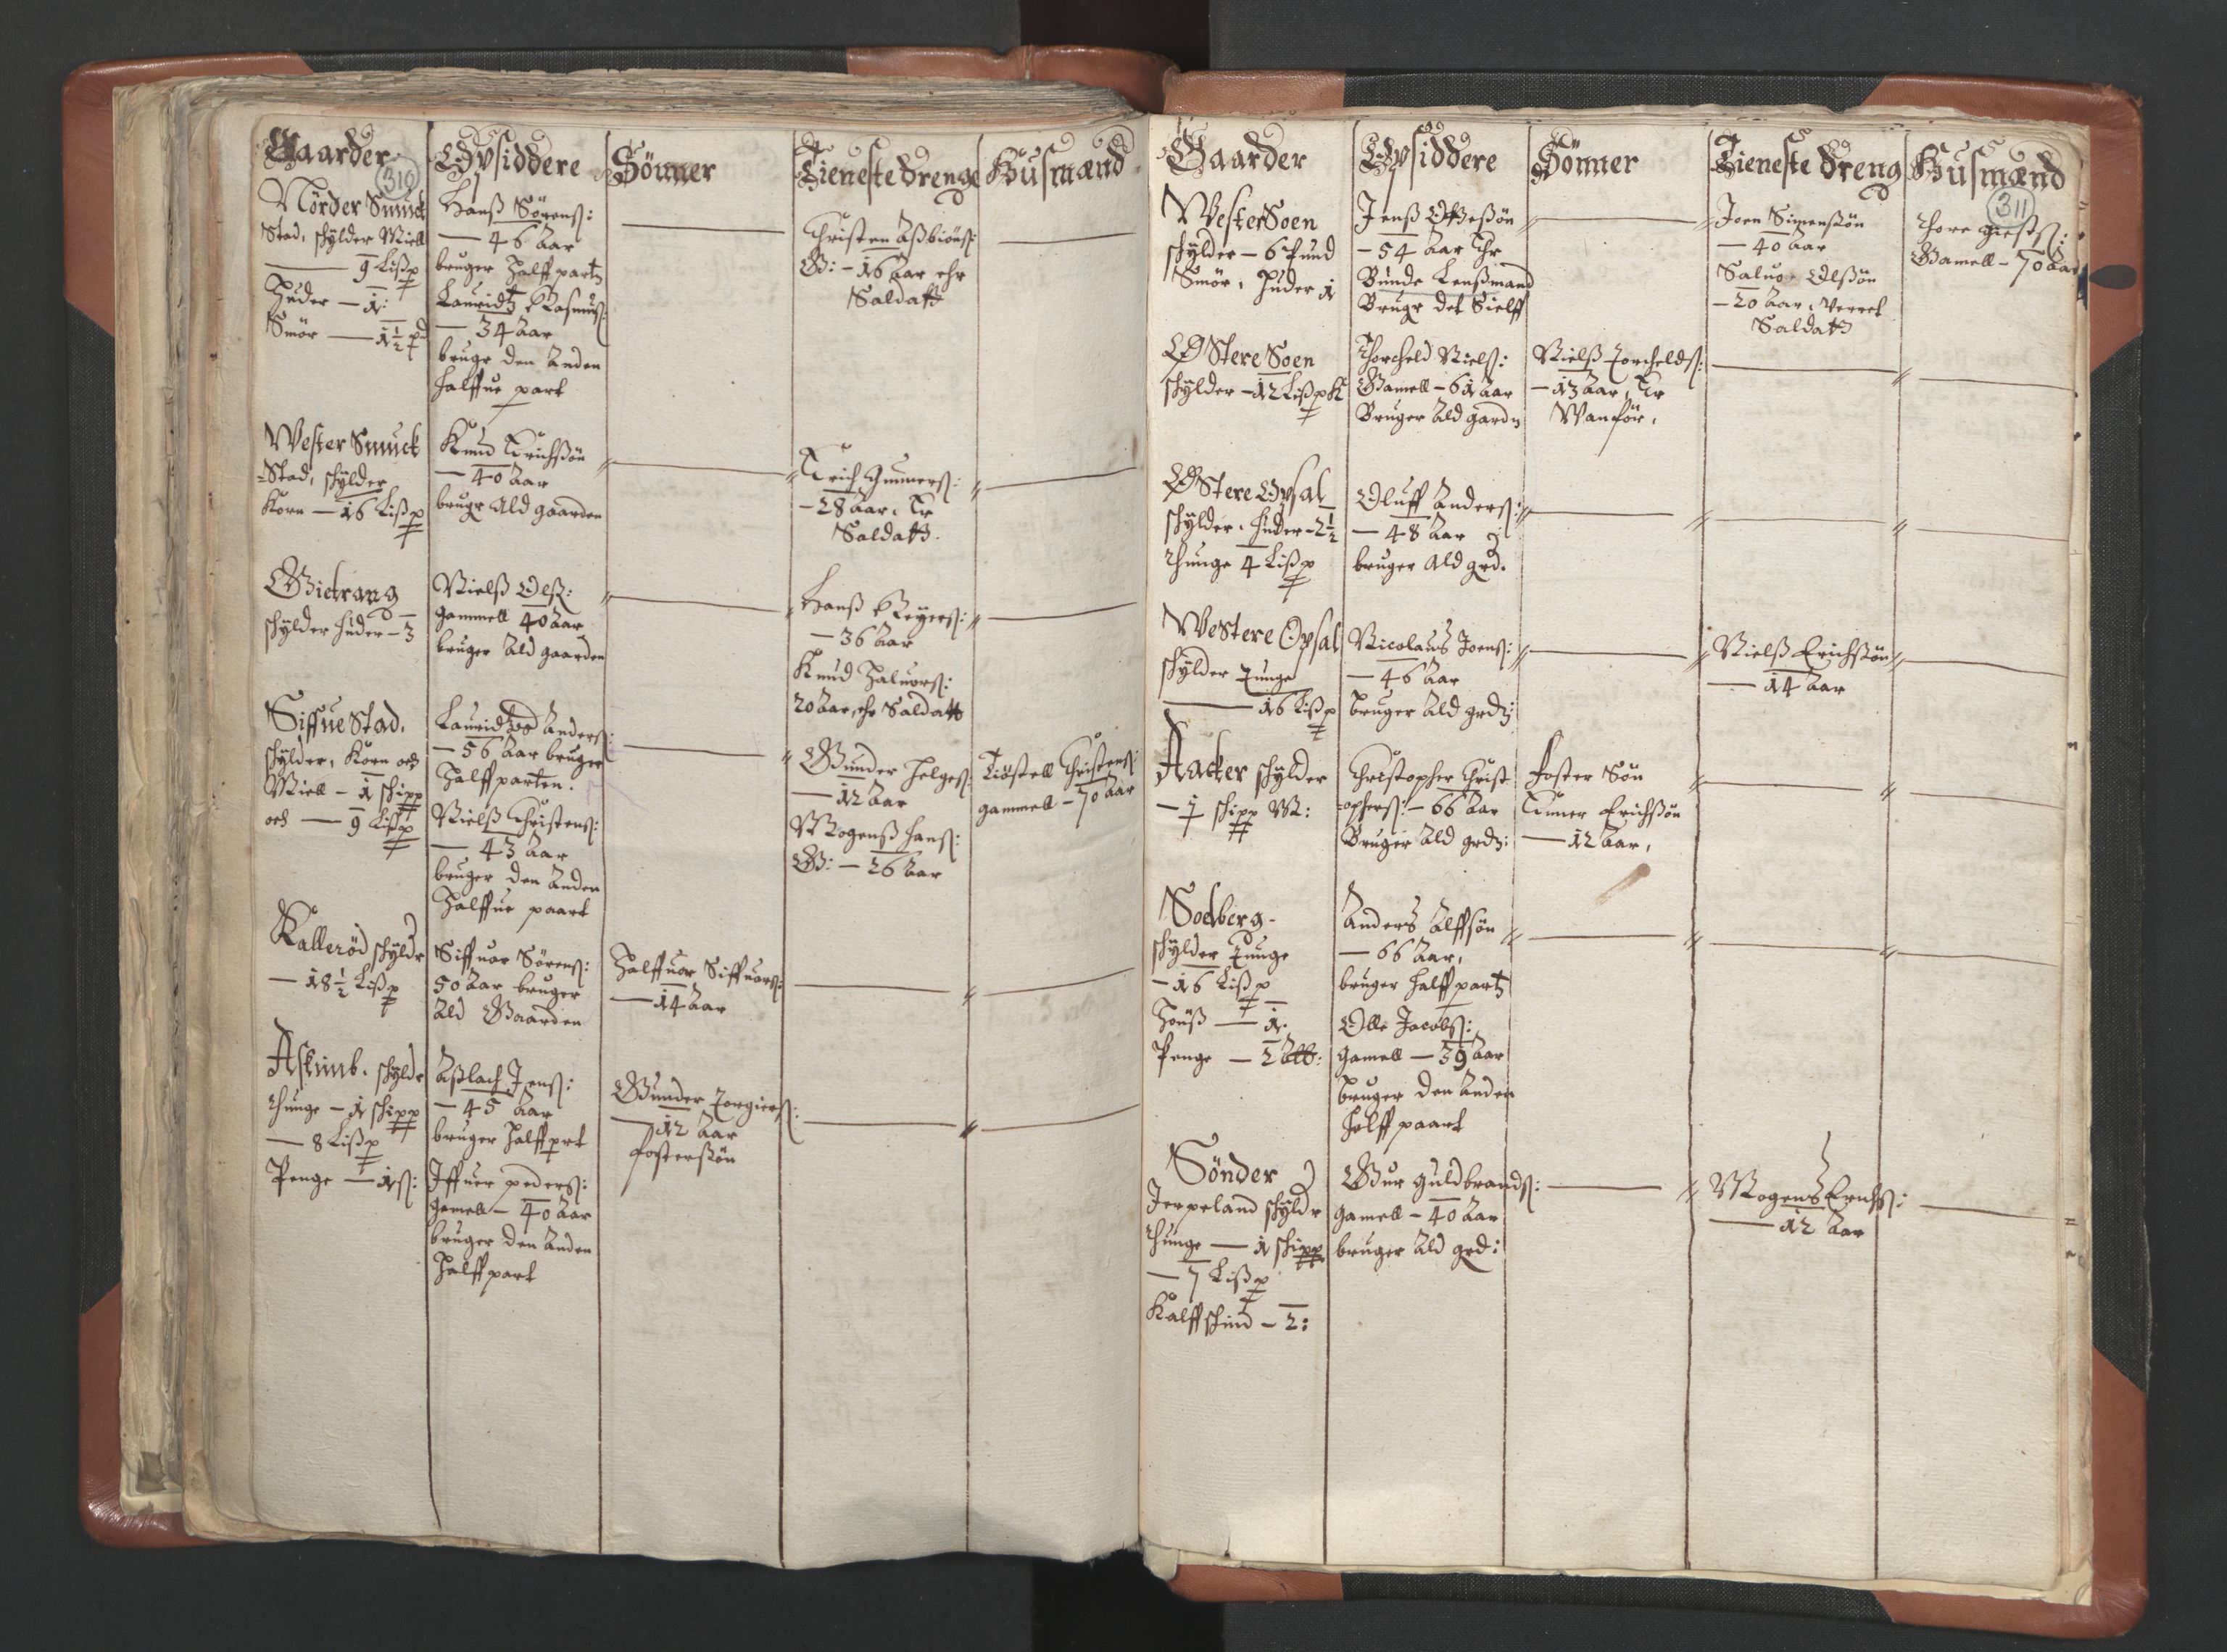 Gaarder
310
Opsiddere
Sönner
Tieneste drenge
Husmænd
Nörder Smuck
Stad, schylder Miell
— 9 Lißp
Huder — 1:
Smör — 1½ pd
Hanß Sörenß:
— 46 Aar
bruger halff partz
Lauridtz Rasmuß:
— 34 Aar
brugr den anden
halffue part
Christen Aßbiönß:
G: — 16 Aar ehr
Saldatt
Wester Smuck
=Stad, schylder
Korn — 16 Lißp
Knud Erichßön
— 40 Aar
brugr Ald gaarden
Erich Gunnerß:
— 28 Aar. Er
Saldatt.
Gietrang
schylder huder — 3
Nielß Olß:
gammell 40 Aar
bruger Ald gaarden
Hanß Reyerß:
— 36 Aar
Knud Haluorß:
20 Aar, ehr Saldatt
Siffue Stad.
schylder, Korn och
Miell — 1 schipp
och — 9 Lißp
Lauridtz Anderß:
— 56 Aar bruger
Halffparten.
Nielß Christenß:
— 43 Aar
bruger den Anden
Halffue paart
Gunder Helgeß:
— 12 Aar
Mogenß Hanß:
G: — 26 Aar
Tiöstell Christenß:
gammell — 70 Aar
Kalleröd schyldr
— 18½ Lißp
Siffuor Sörenß:
50 Aar bruger
Ald Gaarden
Halffuor Siffuorß:
— 14 Aar
Askimb. schyldr
thunge — 1 schipp
— 8 Lißp
Penge — 1 ß:
Aßlach Jenß:
— 45 Aar
bruger halff prt
Iffuer pederß:
gamell — 40 Aar
bruger den Anden
Halff part
Gunder Torgierß:
— 12 Aar
fosterßön
Gaarder
Opsiddere
Sönner
Tieneste dreng
Husmænd
311
Wester Soen
schylder — 6 Pund
Smör, Huder 1
Jenß Otteßön
— 54 Aar Ehr
Bunde Lenßmand
Brugr det Sielff
Joen Simenßön
— 40 Aar
Saluo Olßön
— 20 Aar, verret
Saldatt
Thore
Gamell — 70 Aar
OStere Soen
schylder — 12 Lißp K
Thorcheld Nielß:
Gamell — 61 Aar
Bruger Ald gardn
Nielß Torcheldß:
— 13 Aar, Er
Wanför,
OStere Opsal
schylder. huder — 2½
thunge 4 Lißp
Oluff Anderß:
— 48 Aar
bruger Ald grd.
Westere Opsal
schylder Tunge
— 16 Lißp
Nicolaus Joenß:
— 46 Aar
bruger Ald grd:
Nielß Erichßön
— 14 Aar
Aacker schylder
— 1 schipp M:
Christopher Christ
=opherß: — 66 Aar
Bruger Ald grd:
foster Sön
Einer Erichßön
— 12 Aar,
Solberg.
schylder Tunge
— 16 Lißp
Houß — 1.
Penge — 2
Anders Alffsön
— 66 Aar,
bruger halff partz
Olle Jacobß:
gamell — 39 Aar
bruger den Anden
halff paart
Sönder
Jerpeland schyldr
thunge — 1 schipp
— 7 Lißp
Kalffschind — 2:
Gur Guldbrandß:
gamell — 40 Aar
bruger Ald grd:
Mogens Erichß:
— 12 Aar